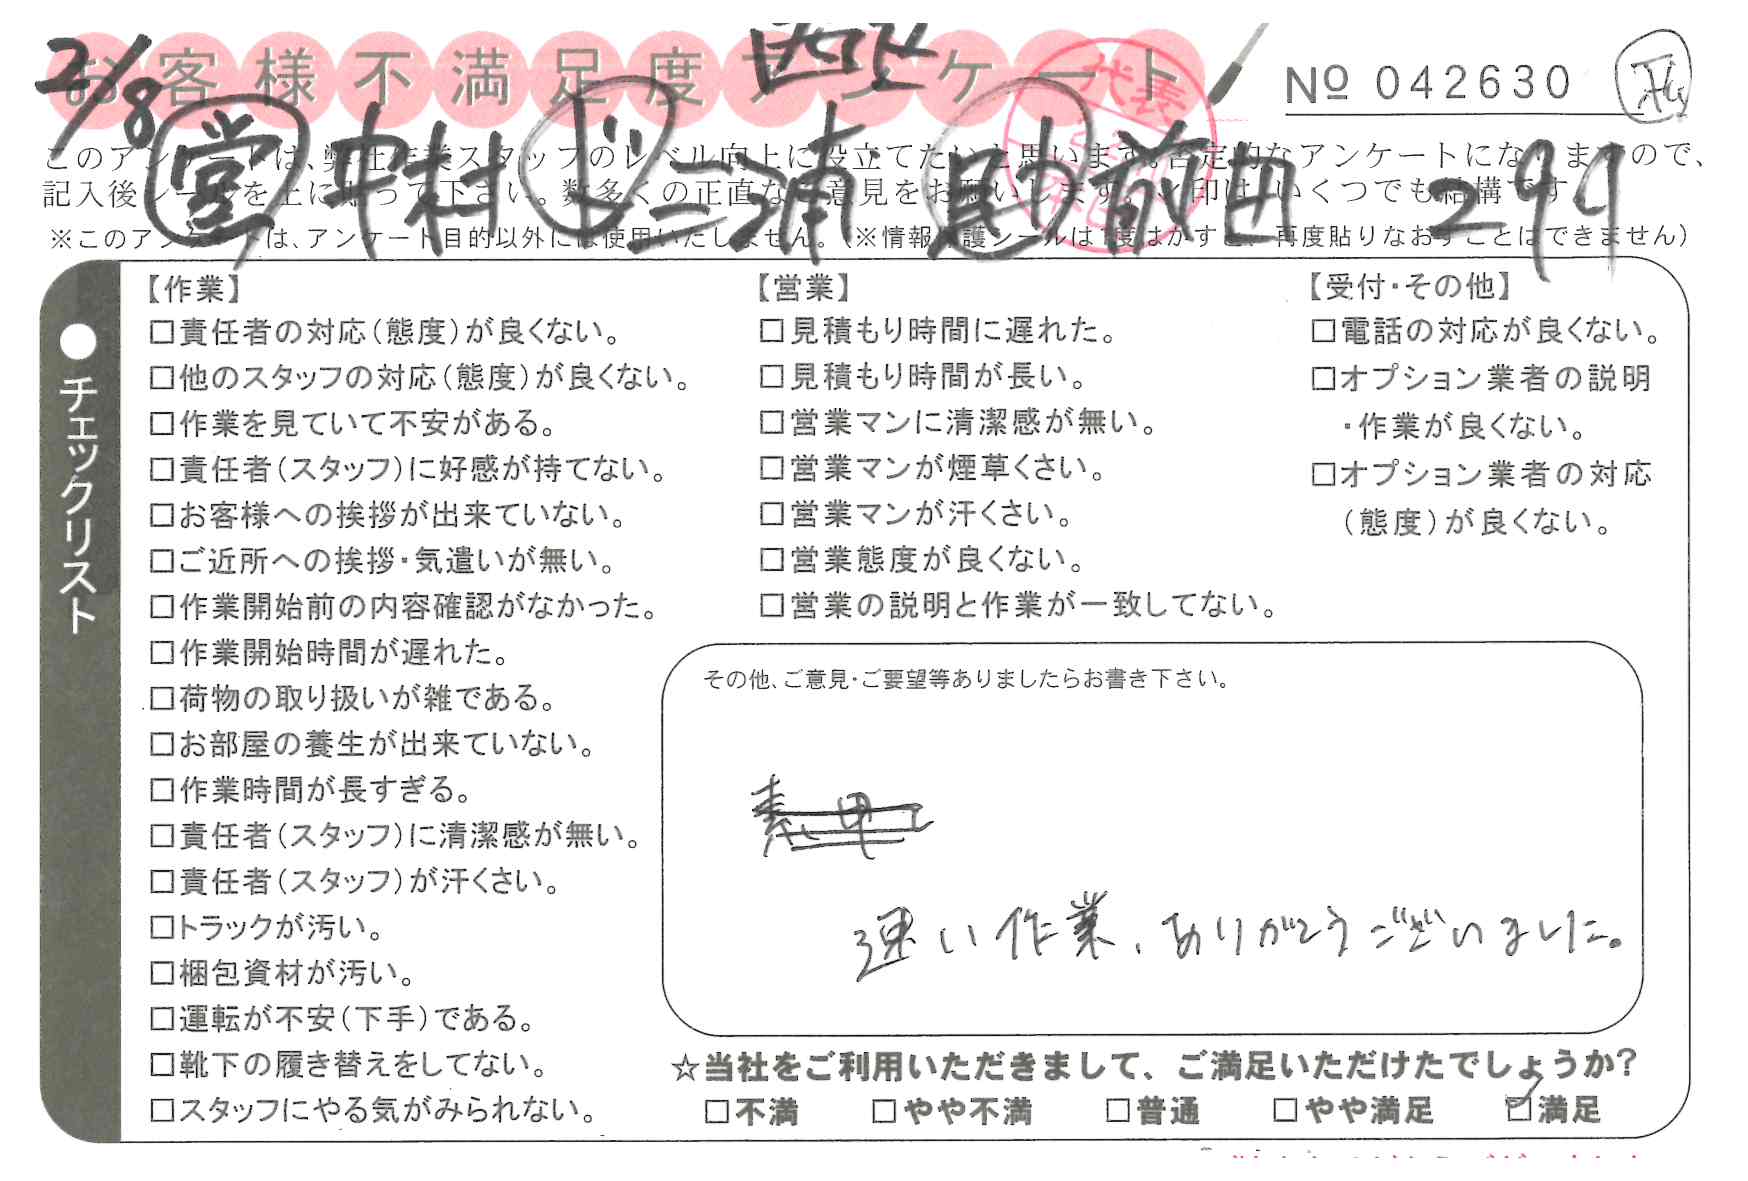 2/8
お客様不満足度アンケート
西
№ 042630
営 中村 ド 三浦 見 前田 299
このアンケートは、弊社作業スタッフのレベル向上に役立てたいと思います。否定的なアンケートになりますので、
記入後シールを上に貼って下さい。数多くの正直なご意見をお願いします。レ印は、いくつでも結構です。
※このアンケートは、アンケート目的以外には使用いたしません。(※情報保護シールは1度はがすと、再度貼りなおすことはできません)
代表
●チェックリスト
【作業】
□責任者の対応(態度)が良くない。
□他のスタッフの対応(態度)が良くない。
□作業を見ていて不安がある。
□責任者(スタッフ)に好感が持てない。
□お客様への挨拶が出来ていない。
□ご近所への挨拶・気遣いが無い。
□作業開始前の内容確認がなかった。
□作業開始時間が遅れた。
□荷物の取り扱いが雑である。
□お部屋の養生が出来ていない。
□作業時間が長すぎる。
□責任者(スタッフ)に清潔感が無い。
□責任者(スタッフ)が汗くさい。
□トラックが汚い。
□梱包資材が汚い。
□運転が不安(下手)である。
□靴下の履き替えをしてない。
□スタッフにやる気がみられない。
【営業】
□見積もり時間に遅れた。
□見積もり時間が長い。
□営業マンに清潔感が無い。
□営業マンが煙草くさい。
□営業マンが汗くさい。
□営業態度が良くない。
□営業の説明と作業が一致してない。
【受付・その他】
□電話の対応が良くない。
□オプション業者の説明
・作業が良くない。
□オプション業者の対応
(態度)が良くない。
その他、ご意見・ご要望等ありましたらお書き下さい。
速い作業、ありがとうございました。
☆当社をご利用いただきまして、ご満足いただけたでしょうか?
□不満 □やや不満 □普通 □やや満足 ☑満足